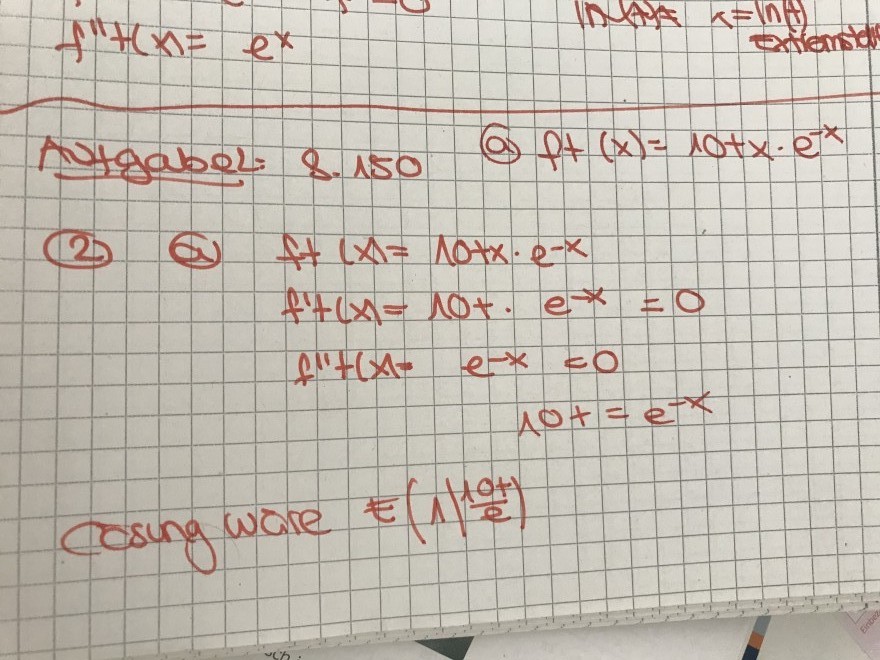 x=ln(t)
f''t(x)= ex
Aufgabe 2: S.150 a) ft (x)= 10tx·e-x
2 a) ft (x)= 10tx·e-x
f't(x)= 10t· e-x =0
f''t(x)= e-x =0
10t = e-x
Lösung wäre E(1|10t/e)